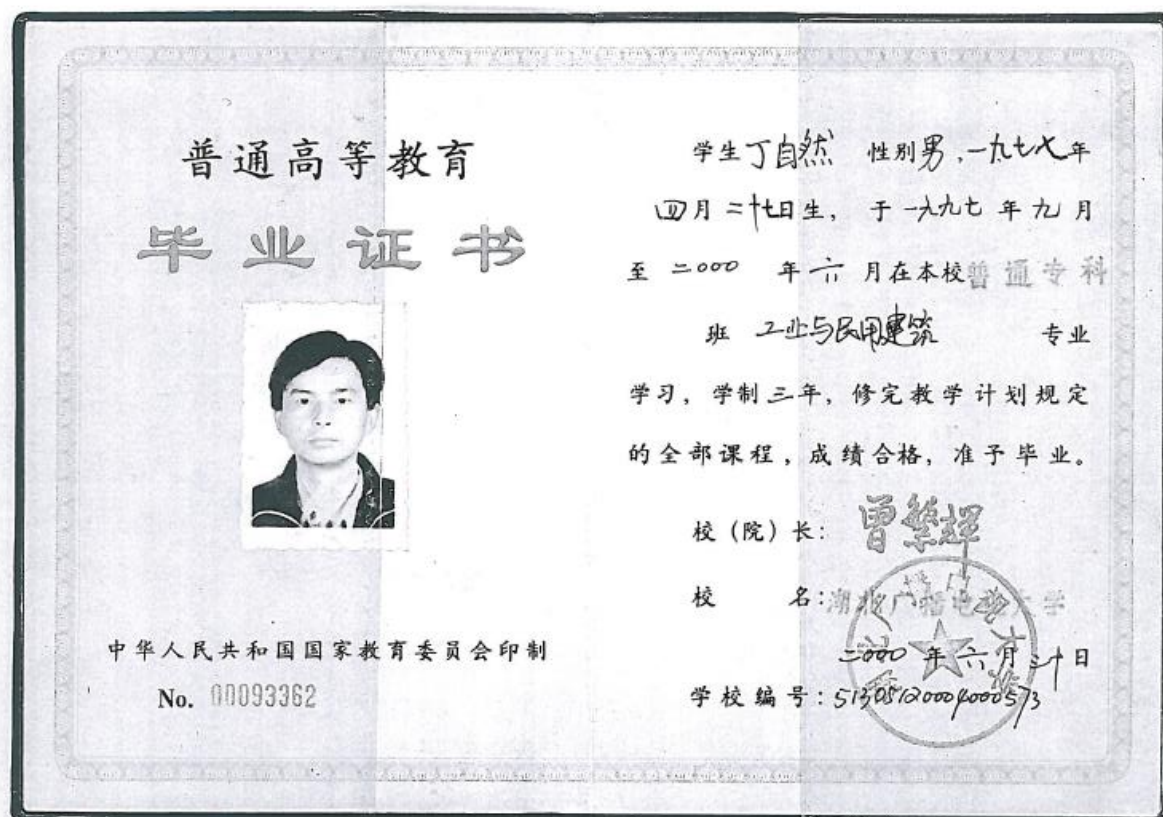 普通高等教育
毕业证书
中华人民共和国国家教育委员会印制
No. 00093362
学生丁自然 性别男，一九七七年
四月二十七日生，于一九九七年九月
至二000年六月在本校普通专科
班 工业与民用建筑 专业
学习，学制三年，修完教学计划规定
的全部课程，成绩合格，准予毕业。
校（院）长：曾繁辉
校 名：湖北广播电视大学
二000年六月三十日
学校编号：51305120004000573